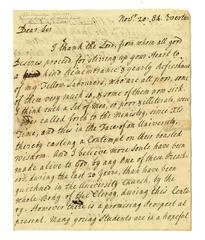 Nov.r 20. 84. Everton
Dear Sir
I thank the Lord, from whom all good
Desires proceed for stirring up your Heart to
a kind Remembrance & yearly Refreshment
of my Fellow-Labourers, who are all poor, some of
them very
think such a Set of Men, so poor & illiterate, were
never called forth to the Ministry, since
Time, and this in the Face of an University,
thereby casting a Contempt on their boasted
Wisdom. And I believe more Souls have been
made alive to God by any One of these Preach-
ers, during the last 20 Years, than have been
quickned in the University Church by the
whole Body of the Clergy, during this Centu-
ry. However there is a promising Prospect at
present. Many young Students are in a hopeful